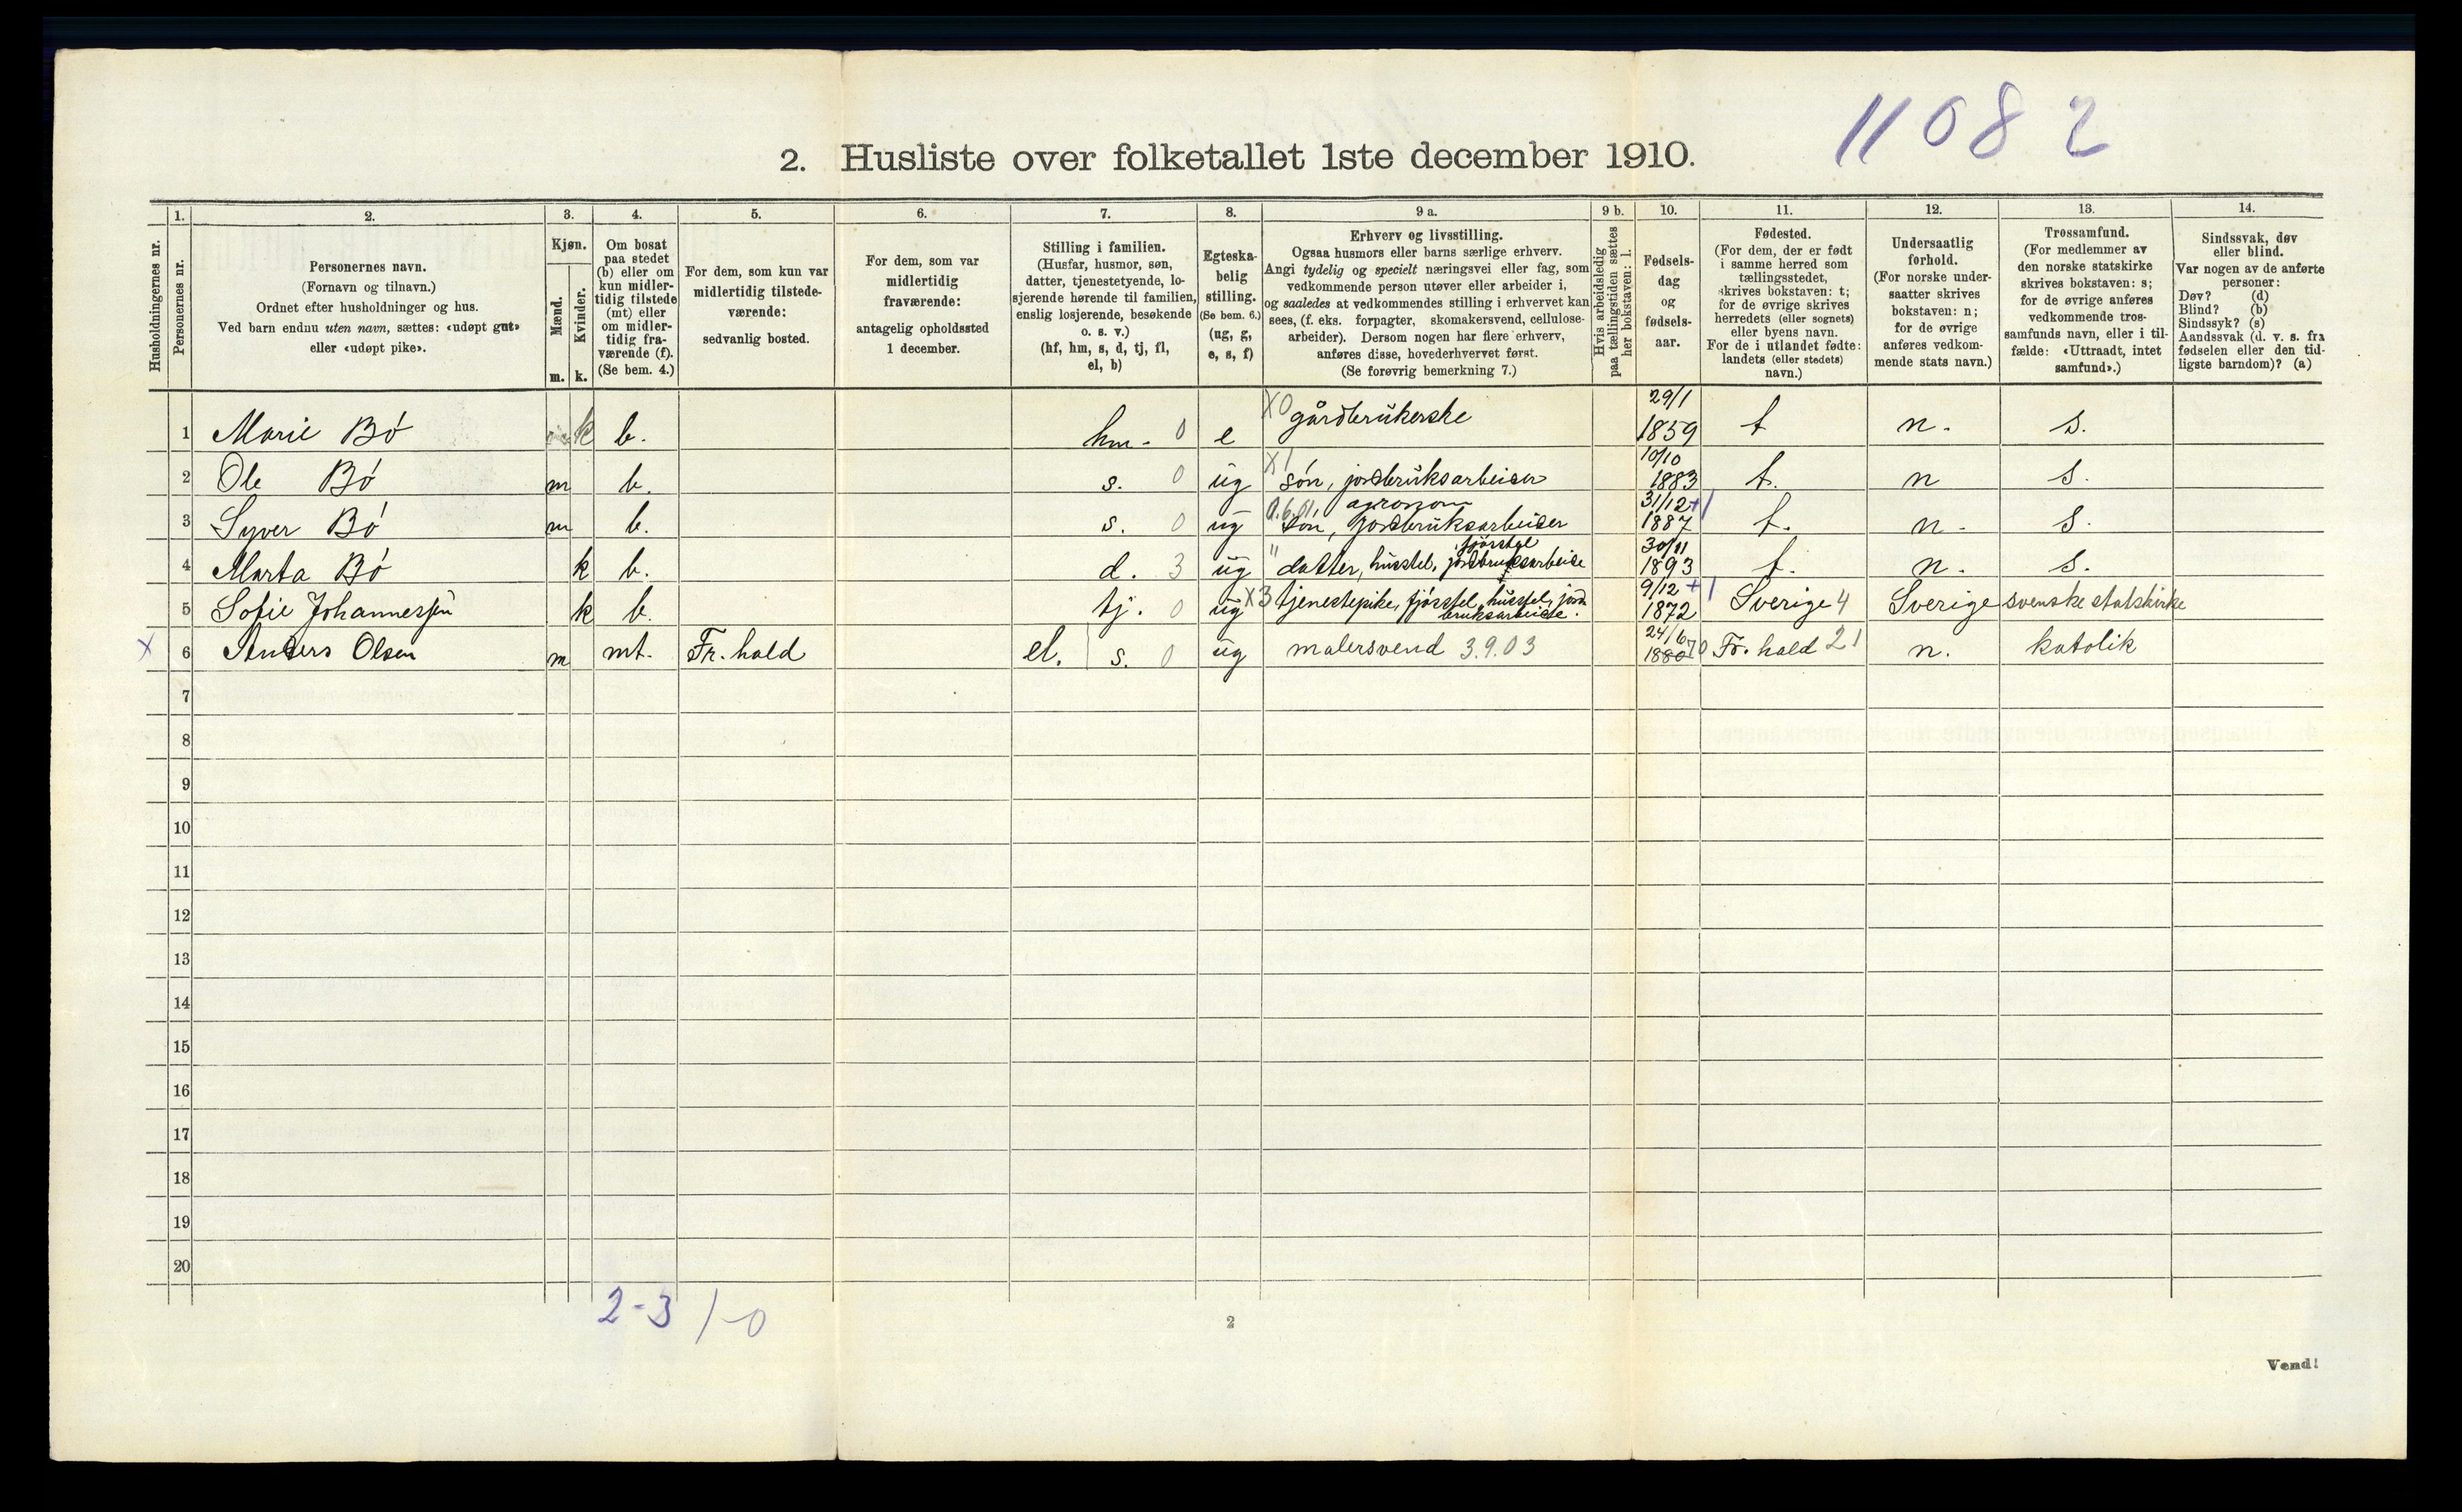 11082
2. Husliste over folketallet 1ste december 1910.
Husholdningernes nr.
1.
Personernes nr.
2.
Personernes navn.
(Fornavn og tilnavn.)
Ordnet efter husholdninger og hus.
Ved barn endnu uten navn, sættes: «udøpt gut»
eller «udøpt pike».
3.
Kjøn.
Mænd.
Kvinder.
m. k.
4.
Om bosat
paa stedet
(b) eller om
kun midler-
tidig tilstede
(mt) eller
om midler-
tidig fra-
værende (f).
(Se bem. 4.)
5.
For dem, som kun var
midlertidig tilstede-
værende:
sedvanlig bosted.
6.
For dem, som var
midlertidig
fraværende:
antagelig opholdssted
1 december.
7.
Stilling i familien.
(Husfar, husmor, søn,
datter, tjenestetyende, lo-
sjerende hørende til familien,
enslig losjerende, besøkende
o. s. v.)
(hf, hm, s, d, tj, fl,
el, b)
8.
Egteska-
belig
stilling.
(Se bem. 6.)
(ug, g,
e, s, f)
9 a.
Erhverv og livsstilling.
Ogsaa husmors eller barns særlige erhverv.
Angi tydelig og specielt næringsvei eller fag, som
vedkommende person utøver eller arbeider i,
og saaledes at vedkommendes stilling i erhvervet kan
sees, (f. eks. forpagter, skomakersvend, cellulose-
arbeider). Dersom nogen har flere erhverv,
anføres disse, hovederhvervet først.
(Se forøvrig bemerkning 7.)
9 b.
Hvis arbeidsledig
paa tællingstiden sættes
her bokstaven: l.
10.
Fødsels-
dag
og
fødsels-
aar.
11.
Fødested.
(For dem, der er født
i samme herred som
tællingsstedet,
skrives bokstaven: t;
for de øvrige skrives
herredets (eller sognets)
eller byens navn.
For de i utlandet fødte:
landets (eller stedets)
navn.)
12.
Undersaatlig
forhold.
(For norske under-
saatter skrives
bokstaven: n;
for de øvrige
anføres vedkom-
mende stats navn.)
13.
Trossamfund.
(For medlemmer av
den norske statskirke
skrives bokstaven: s;
for de øvrige anføres
vedkommende tros-
samfunds navn, eller i til-
fælde: «Uttraadt, intet
samfund».)
14.
Sindssvak, døv
eller blind.
Var nogen av de anførte
personer:
Døv? (d)
Blind? (b)
Sindssyk? (s)
Aandssvak (d. v. s. fra
fødselen eller den tid-
ligste barndom)? (a)
1 Marie Bó k b. hm. 0 e X0 gårdbrükerske 29/1 1859 t n. s.
2 Ole Bó m b. s. 0 üg X1 són, jordbrüksarbeider 10/10 1883 t. n s.
3 Syver Bó m b. s. 0 üg 0.6.01 agronom són, jordbrüksarbeider 31/12 +1 1887 t. n. s.
4 Marta Bó k b. d. 3 üg " datter, hüsstel, fjósstel jordbruksarbeide 30/11 1893 t. n. s.
5 Sofie Johannessen k b. tj. 0 üg X3 tjenestepike, fjósstel, hüsstel, jord bruksarbeide. 9/12 +1 1872 Sverige 4 Sverige svenske statskirke
X 6 Anders Olsen m mt. Fr. hald el. s. 0 üg malersvend 3.9.03 24/6 1880 70 Fr. hald 21 n. katolik
7
8
9
10
11
12
13
14
15
16
17
18
19
20
2-3 1-0
2
Vend!